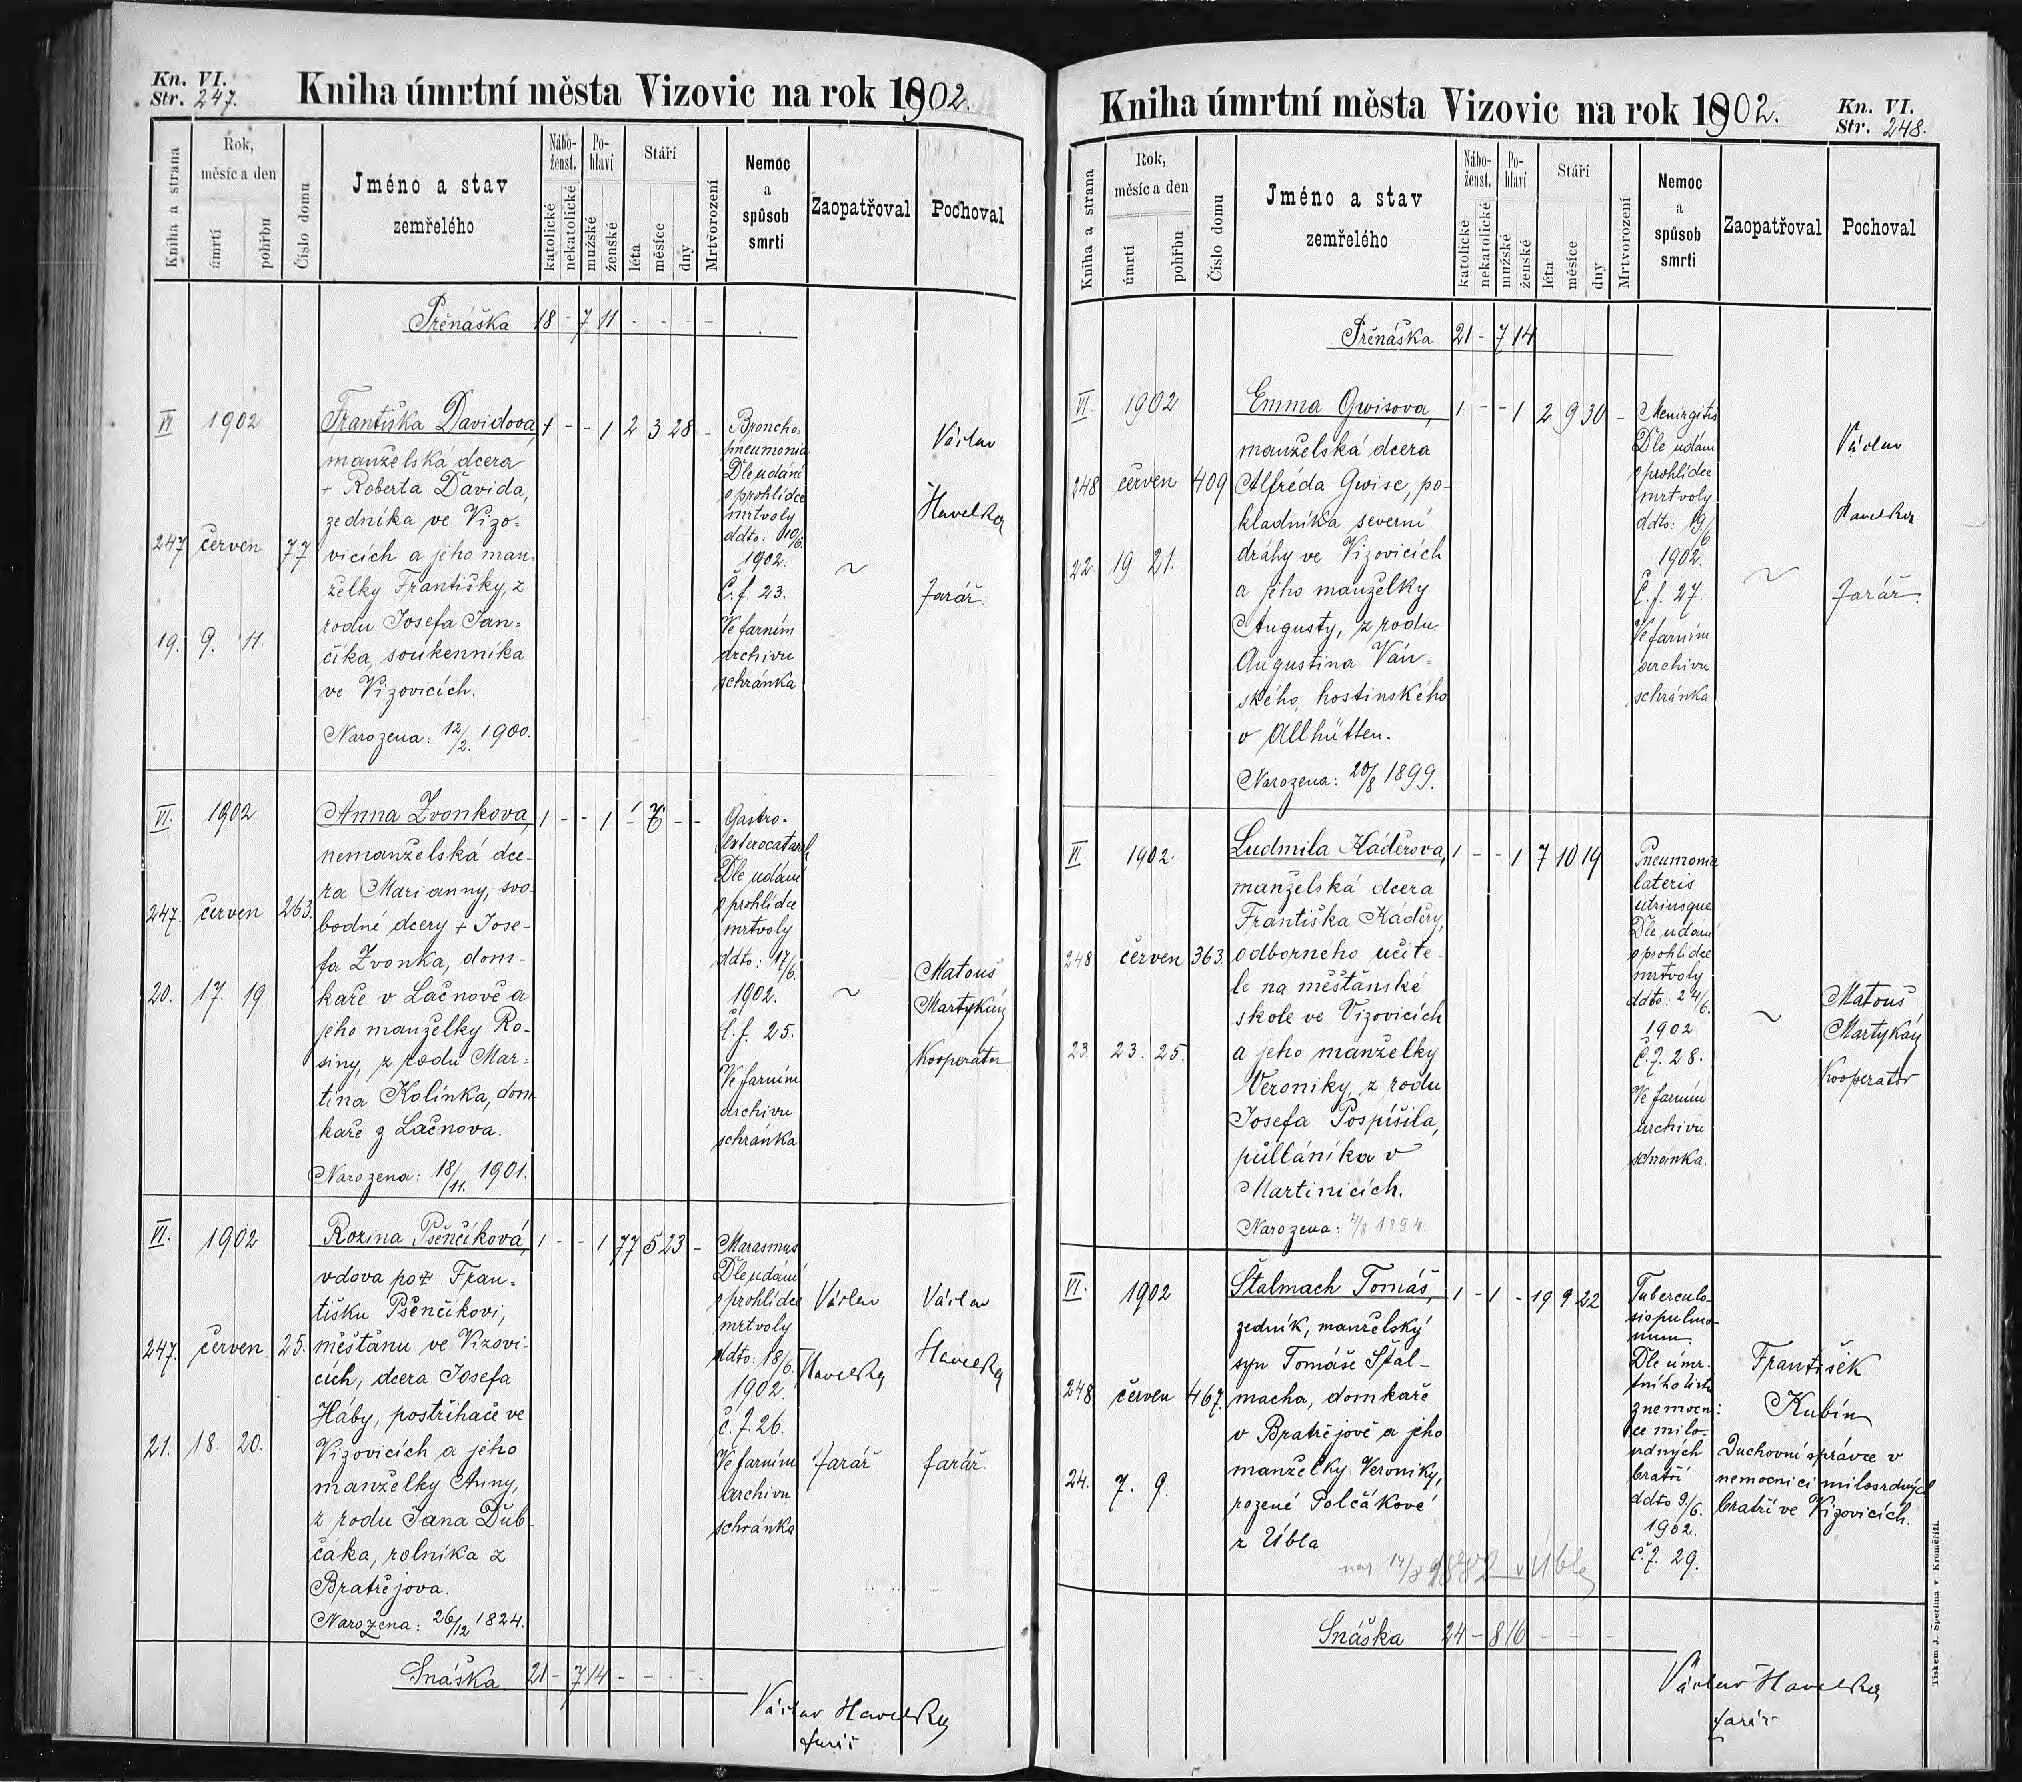 Kn. VI.
Str. 247.
Kniha úmrtní města Vizovic na rok 1902.
Kniha a strana
Rok, měsíc a den
úmrtí
pohřbu
Číslo domu
Jméno a stav
zemřelého
Nábo-
ženst.
katolické
nekatolické
Po-
hlaví
mužské
ženské
Stáří
léta
měsíce
dny
Mrtvorození
Nemoc
a
spůsob
smrti
Zaopatřoval
Pochoval
Přenáška 18 - 7 11 - - - -
VI 1902
247 červen 77
19. 9. 11.
Františka Davidova,
manželská dcera
+ Roberta Davida,
zedníka ve Vizo-
vicích a jeho man-
želky Františky, z
rodu Josefa Jan-
číka, soukenníka
ve Vizovicích.
Narozena: 12/2. 1900.
1 - - 1 2 3 28 -
Broncho-
pneumonia
Dle udání
o prohlídce
mrtvoly
ddto: 10/6.
1902.
Č.f. 23.
Ve farním
archivu
schránka
~
Václav
Havelka
farář.
VI. 1902
247. červen 263.
20. 17. 19
Anna Zvonkova,
nemanželská dce-
ra Marianny, svo-
bodné dcery + Jose-
fa Zvonka, dom-
kaře v Lačnově a
jeho manželky Ro-
siny, z rodu Mar-
tina Kolínka, dom
kaře z Lačnova.
Narozena: 18/11. 1901.
1 - - 1 - - -
Gastro-
enterocatarh
Dle udání
o prohlídce
mrtvoly
ddto: 17/6.
1902.
č.f. 25.
Ve farním
archivu
schránka
~
Matouš
Martykán
Kooperator
VI. 1902
247. červen 25.
21. 18. 20.
Rozina Pšenčíková,
vdova po + Fran-
tišku Pšenčíkovi,
měšťanu ve Vizovi-
cích, dcera Josefa
Háby, postřihače ve
Vizovicích a jeho
manželky Anny,
z rodu Jana Dub-
čaka, rolníka z
Bratřejova.
Narozena: 26/12 1824.
1 - - 1 77 5 23 -
Marasmus
Dle udání
o prohlídce
mrtvoly
ddto: 18/6.
1902.
č.f. 26.
Ve farním
archivu
schránka
Václav
Havelka
farář
Václav
Havelka
farář.
Snáška 21 - 7 14 - - - -
Václav Havelka
farář
Kniha úmrtní města Vizovic na rok 1902.
Kn. VI.
Str. 248.
Kniha a strana
Rok,
měsíc a den
úmrtí
pohřbu
Číslo domu
Jméno a stav
zemřelého
Nábo-
ženst.
katolické
nekatolické
Po-
hlaví
mužské
ženské
Stáří
léta
měsíce
dny
Mrtvorození
Nemoc
a
spůsob
smrti
Zaopatřoval
Pochoval
Přenáška 21 - 7 14
VI. 1902
248 červen 409
22. 19 21.
Emma Gwisova,
manželská dcera
Alfréda Gwise, po-
kladníka severní
dráhy ve Vizovicích
a jeho manželky
Augusty, z rodu
Augustina Ván-
ského, hostinského
v Allhütten.
Narozena: 20/8 1899.
1 - - 1 2 9 30 -
Meningitis
Dle udání
o prohlídce
mrtvoly
ddto: 19/6
1902.
Č.f. 27.
Ve farním
archivu
schránka
~
Václav
Havelka
farář.
VI. 1902.
248 červen 363.
23. 23. 25.
Ludmila Káděrova,
manželská dcera
Františka Káděry,
odborného učite-
le na měšťanské
škole ve Vizovicích
a jeho manželky
Veroniky, z rodu
Josefa Pospíšila,
půlláníka v
Martinicích.
Narozena: 4/8 1894.
1 - - 1 7 10 19
Pneumonia
lateris
utriusque
Dle udání
o prohlídce
mrtvoly
ddto: 24/6.
1902
Č.f. 28.
Ve farním
archivu
schránka.
~
Matouš
Martykán
Kooperator
VI. 1902
248 červen 467.
24. 7. 9.
Štalmach Tomáš,
zedník, manželský
syn Tomáše Štal-
macha, domkaře
v Bratřejově a jeho
manželky Veroniky,
rozené Polčákové
z Ubla
nar. 14/8 1882 v Uble
1 - 1 - 19 9 22
Tuberculo-
sis pulmo-
num.
Dle úmr-
tního listu
z nemocni-
ce milo-
srdných
bratří
ddto 9./6.
1902.
č.f. 29.
František
Kubín
Duchovní správce v
nemocnici milosrdných
bratří ve Vizovicích.
Snáška 24 - 8 16 - - -
Václav Havelka
farář
Tiskem J. Sperlina v Kroměříži.